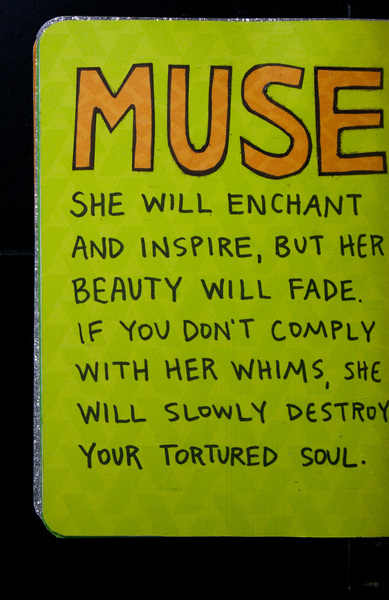 MUSE
SHE WILL ENCHANT
AND INSPIRE, BUT HER
BEAUTY WILL FADE.
IF YOU DON'T COMPLY
WITH HER WHIMS, SHE
WILL SLOWLY DESTROY
YOUR TORTURED SOUL.